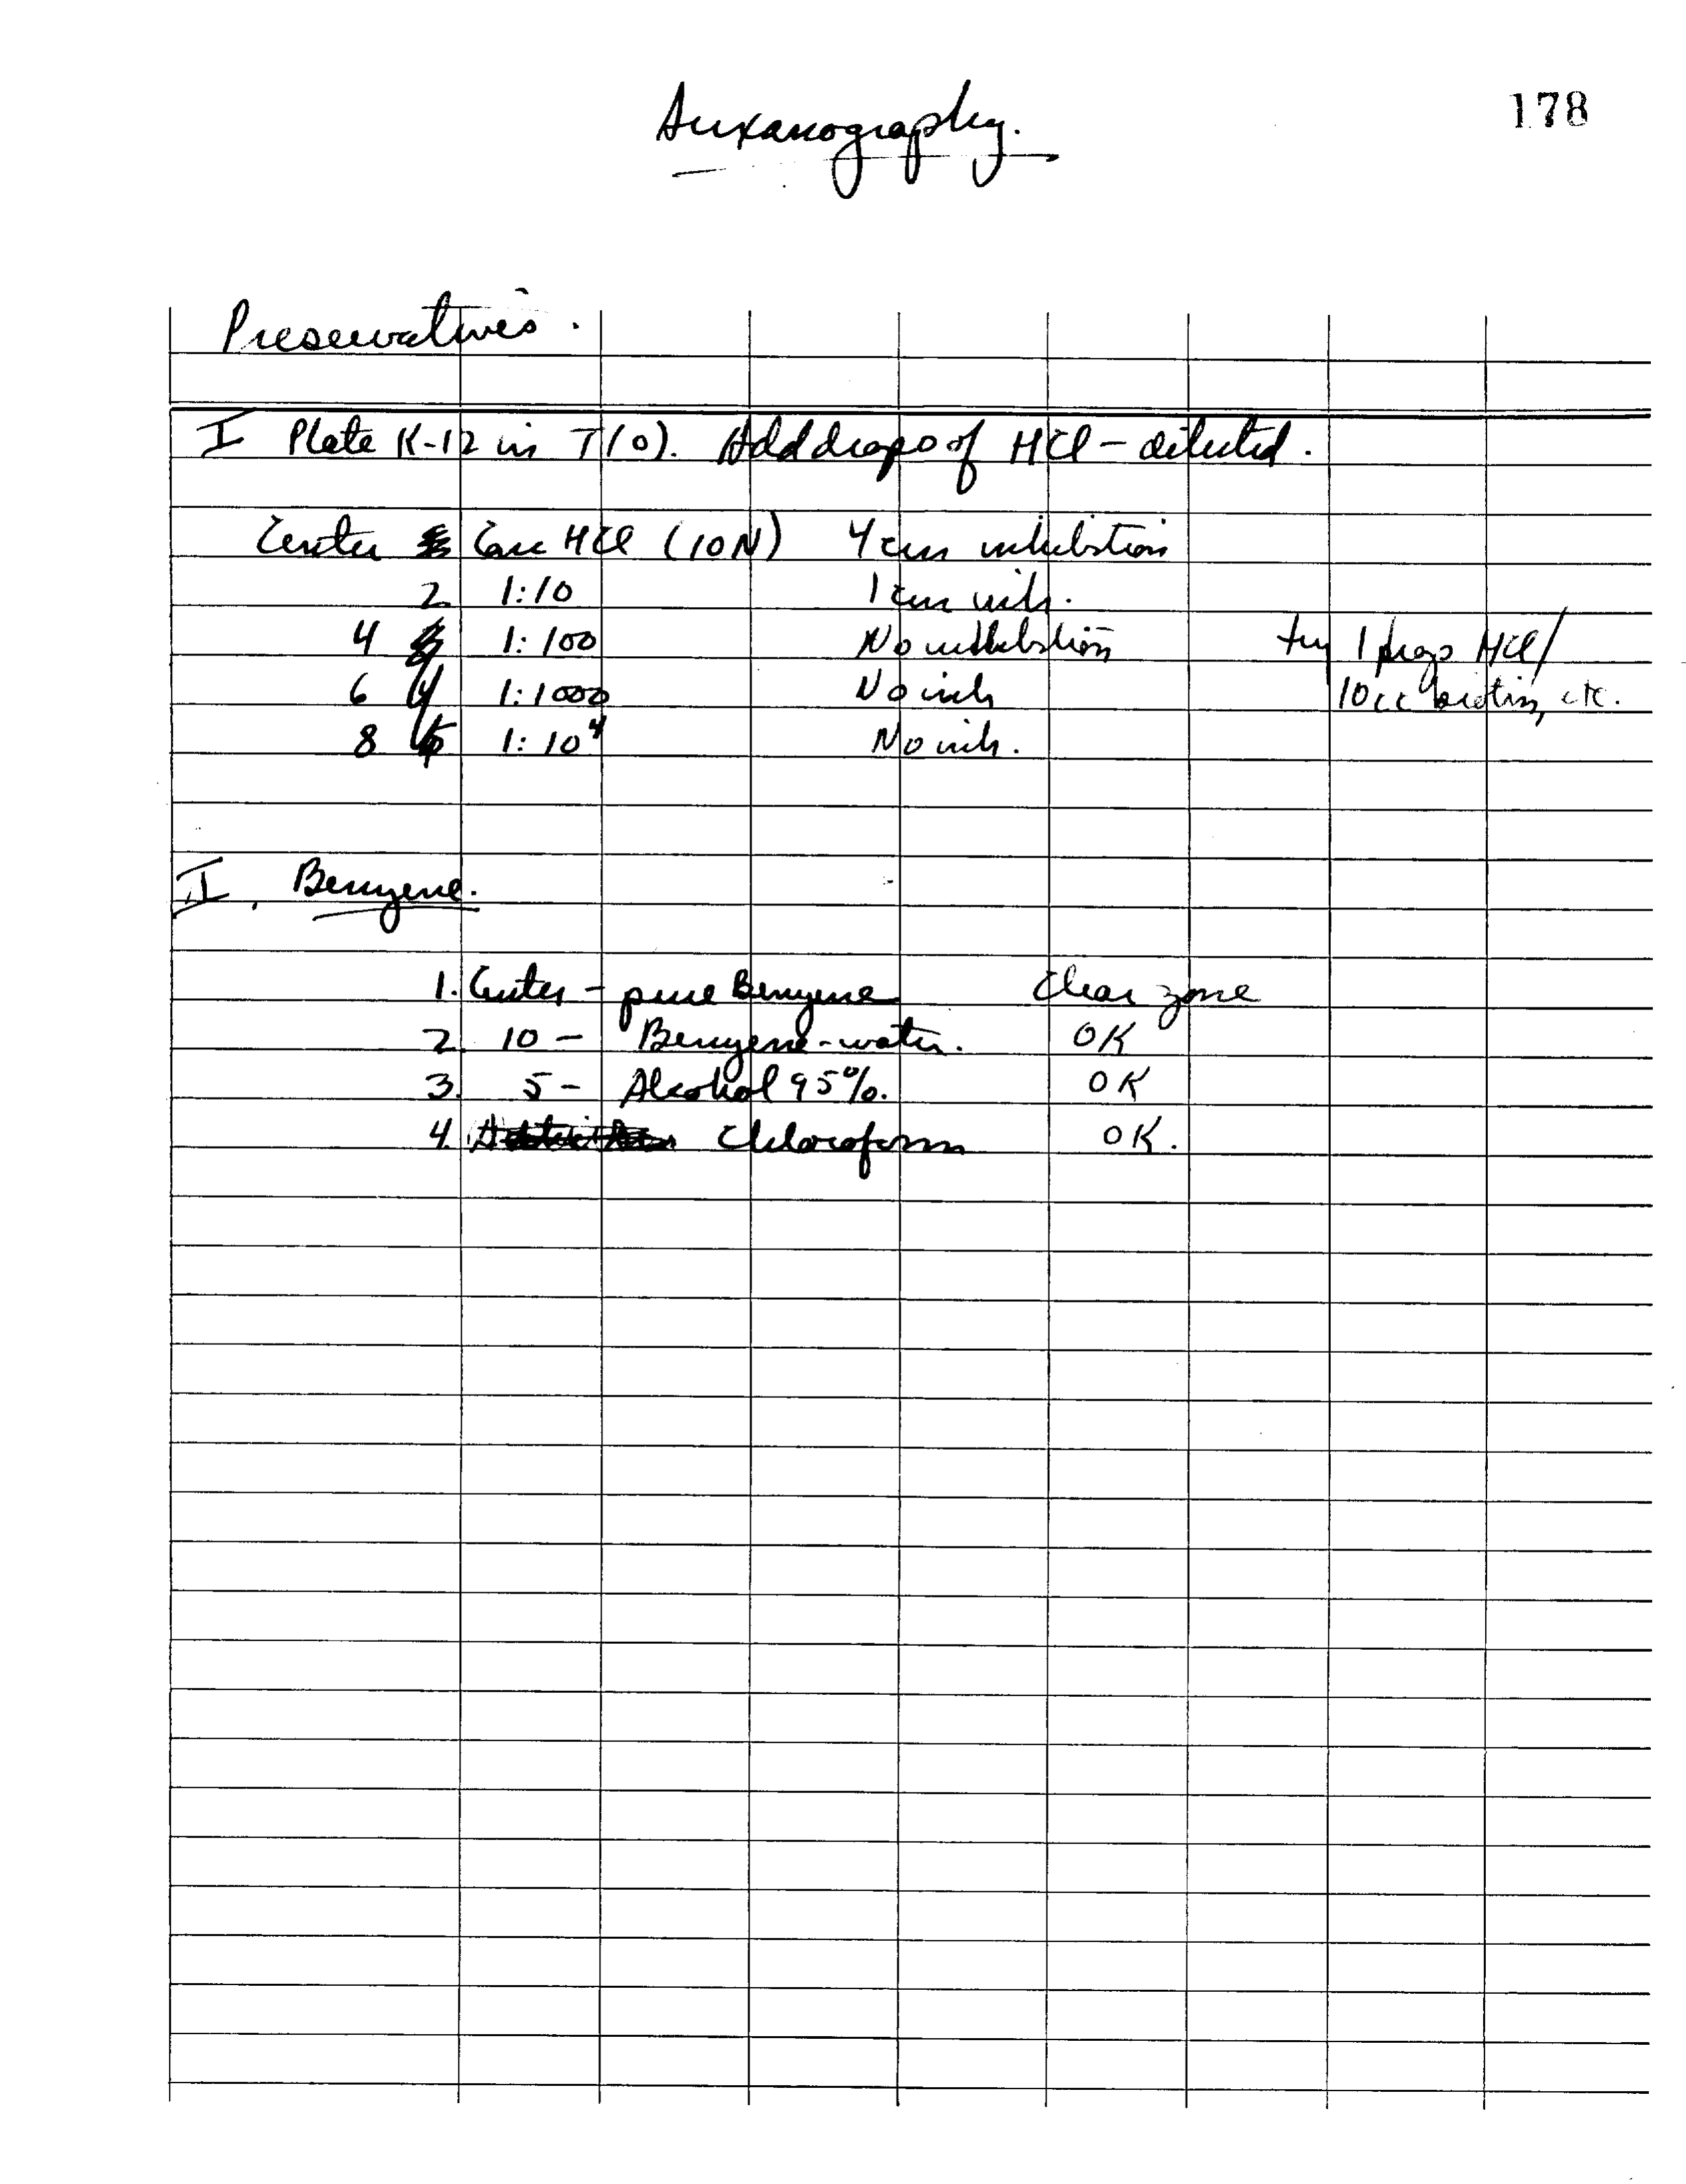 178
Auxanography.
Preservatives.
I Plate K-12 in T(0). Add drops of HCl - diluted.
Center Conc HCl (10N) 4 cm inhibition
2 1:10 1 cm inh.
4 1:100 No inhibition try 1 drop HCl/
6 1:1000 No inh 10cc biotin, etc.
8 1:10⁴ No inh.
I. Benzene.
1. Center - pure Benzene Clear zone
2. 10 - Benzene-water. OK
3. 5 - Alcohol 95%. OK
4. Chloroform OK.